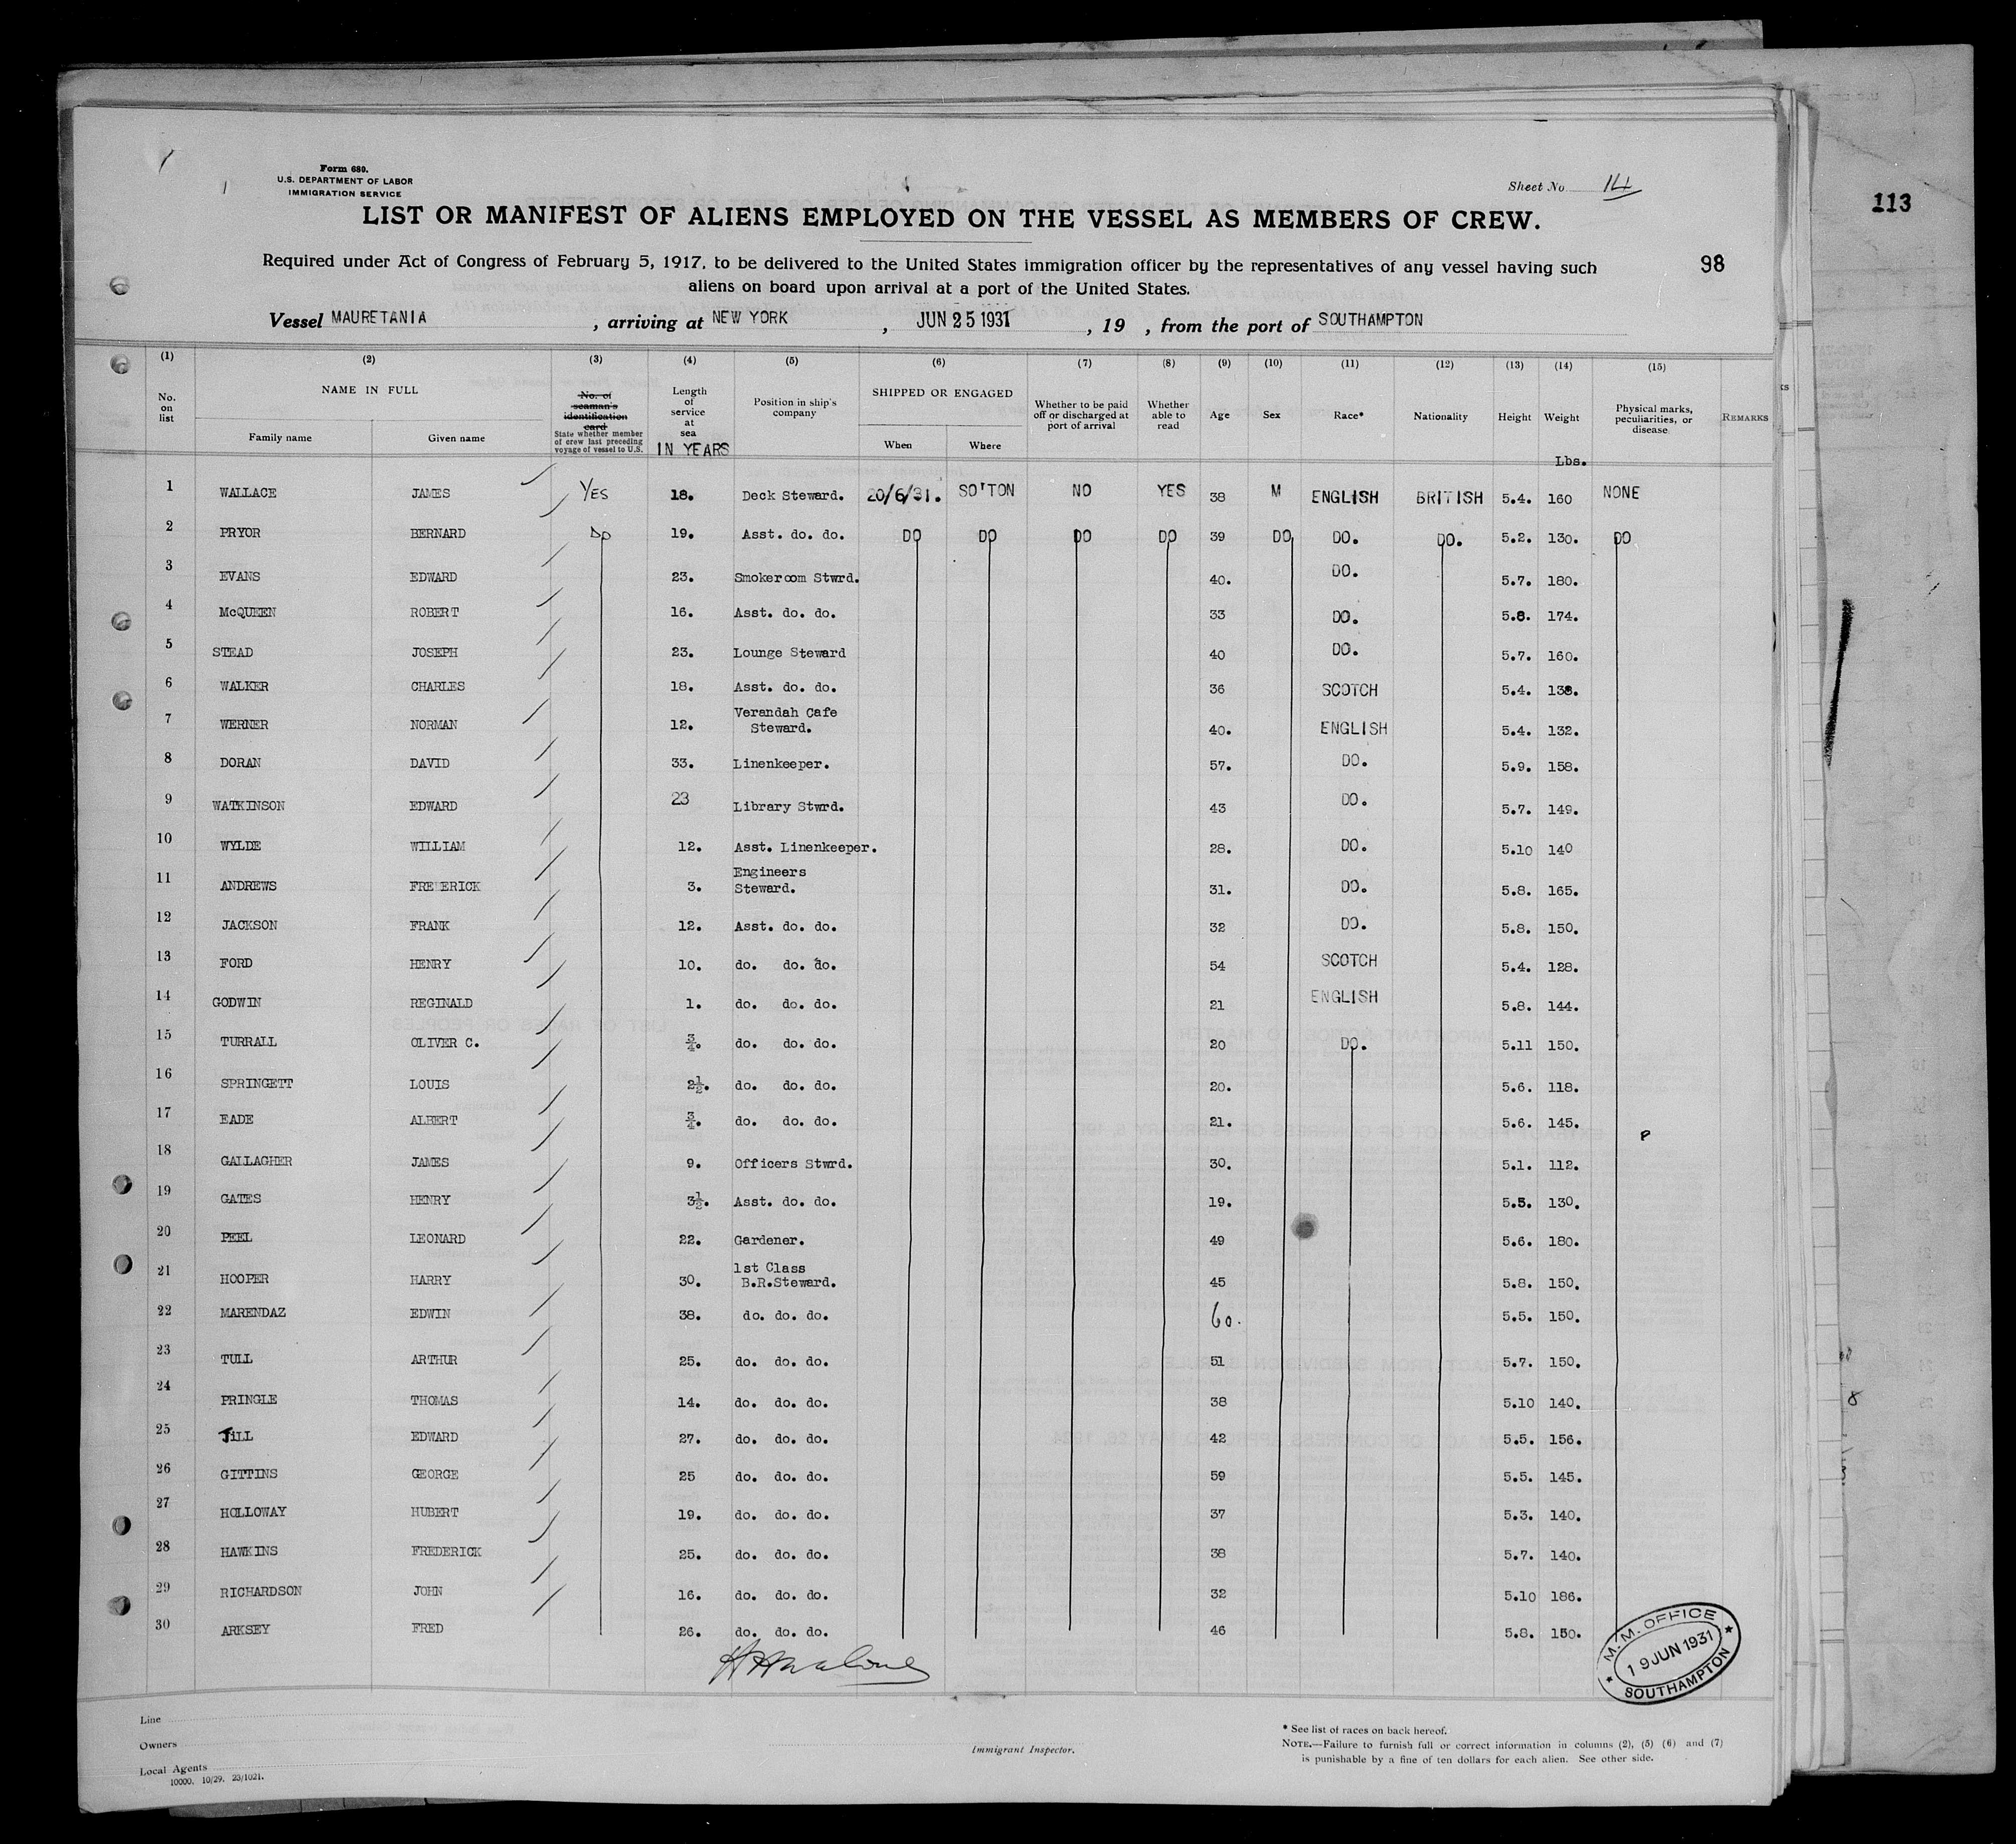 Form 680.
U.S. DEPARTMENT OF LABOR
IMMIGRATION SERVICE
Sheet No. 14
113
LIST OR MANIFEST OF ALIENS EMPLOYED ON THE VESSEL AS MEMBERS OF CREW.
Required under Act of Congress of February 5, 1917, to be delivered to the United States immigration officer by the representatives of any vessel having such
98
aliens on board upon arrival at a port of the United States.
Vessel MAURETANIA , arriving at NEW YORK , JUN 25 1931 , 19 , from the port of SOUTHAMPTON
(1) (2) (3) (4) (5) (6) (7) (8) (9) (10) (11) (12) (13) (14) (15)
No. on list
NAME IN FULL
Family name Given name
No. of seaman's identification card
State whether member of crew last preceding voyage of vessel to U.S.
Length of service at sea
IN YEARS
Position in ship's company
SHIPPED OR ENGAGED
When Where
Whether to be paid off or discharged at port of arrival
Whether able to read
Age Sex Race* Nationality Height Weight
Lbs.
Physical marks, peculiarities, or disease
REMARKS
1 WALLACE JAMES YES 18. Deck Steward. 20/6/31. SO'TON NO YES 38 M ENGLISH BRITISH 5.4. 160 NONE
2 PRYOR BERNARD DO 19. Asst. do. do. DO DO DO DO 39 DO DO. DO. 5.2. 130. DO
3 EVANS EDWARD 23. Smokeroom Stwrd. 40. DO. 5.7. 180.
4 McQUEEN ROBERT 16. Asst. do. do. 33 DO. 5.8. 174.
5 STEAD JOSEPH 23. Lounge Steward 40 DO. 5.7. 160.
6 WALKER CHARLES 18. Asst. do. do. 36 SCOTCH 5.4. 138.
7 WERNER NORMAN 12. Verandah Cafe Steward. 40. ENGLISH 5.4. 132.
8 DORAN DAVID 33. Linenkeeper. 57. DO. 5.9. 158.
9 WATKINSON EDWARD 23 Library Stwrd. 43 DO. 5.7. 149.
10 WYLDE WILLIAM 12. Asst. Linenkeeper. 28. DO. 5.10 140
11 ANDREWS FREDERICK 3. Engineers Steward. 31. DO. 5.8. 165.
12 JACKSON FRANK 12. Asst. do. do. 32 DO. 5.8. 150.
13 FORD HENRY 10. do. do. do. 54 SCOTCH 5.4. 128.
14 GODWIN REGINALD 1. do. do. do. 21 ENGLISH 5.8. 144.
15 TURRALL OLIVER C. 3/4. do. do. do. 20 DO. 5.11 150.
16 SPRINGETT LOUIS 2½. do. do. do. 20. 5.6. 118.
17 EADE ALBERT 3/4. do. do. do. 21. 5.6. 145.
18 GALLAGHER JAMES 9. Officers Stwrd. 30. 5.1. 112.
19 GATES HENRY 3½. Asst. do. do. 19. 5.5. 130.
20 PEEL LEONARD 22. Gardener. 49 5.6. 180.
21 HOOPER HARRY 30. 1st Class B.R.Steward. 45 5.8. 150.
22 MARENDAZ EDWIN 38. do. do. do. 60. 5.5. 150.
23 TULL ARTHUR 25. do. do. do. 51 5.7. 150.
24 PRINGLE THOMAS 14. do. do. do. 38 5.10 140.
25 JILL EDWARD 27. do. do. do. 42 5.5. 156.
26 GITTINS GEORGE 25 do. do. do. 59 5.5. 145.
27 HOLLOWAY HUBERT 19. do. do. do. 37 5.3. 140.
28 HAWKINS FREDERICK 25. do. do. do. 38 5.7. 140.
29 RICHARDSON JOHN 16. do. do. do. 32 5.10 186.
30 ARKSEY FRED 26. do. do. do. 46 5.8. 150.
M.M. OFFICE
19 JUN 1931
SOUTHAMPTON
Line
Owners
Local Agents
10000. 10/29. 23/1021.
Immigrant Inspector.
* See list of races on back hereof.
NOTE.—Failure to furnish full or correct information in columns (2), (5) (6) and (7)
is punishable by a fine of ten dollars for each alien. See other side.